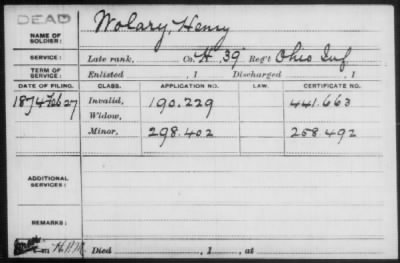 DEAD
NAME OF SOLDIER: Wolary, Henry
SERVICE: Late rank, Co. H, 39" Reg't Ohio Inf
TERM OF SERVICE: Enlisted , 1 Discharged , 1
DATE OF FILING. CLASS. APPLICATION NO. LAW. CERTIFICATE NO.
1874 Feb 27 Invalid, 190.229 441.663
Widow,
Minor, 298.402 258.492
ADDITIONAL SERVICES:
REMARKS:
Died , 1 , at